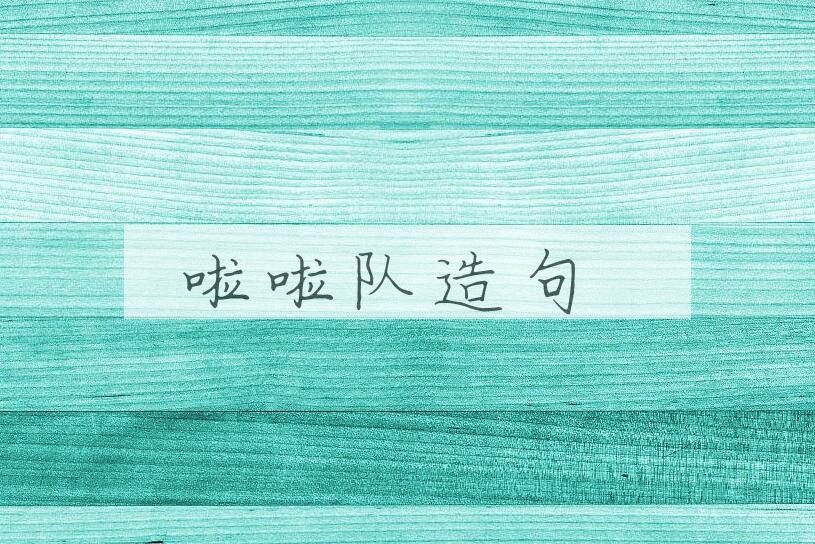 啦啦队造句